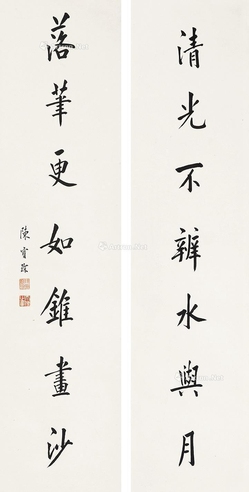 清光不辨水與月
落筆更如錐畫沙
陳寶琛